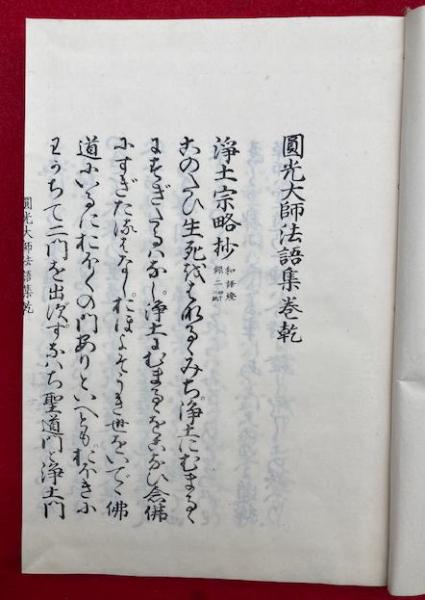 圓光大師法語集巻乾
淨土宗略抄 和語燈録二
このたひ生死をはなるゝみち。淨土にむまるゝ
にすぎたるハなし。淨土にむまるゝをこなひ念佛
にすぎたるはなし。おほよそうき世をいでゝ佛
道にいるにおほくの門ありといへとも。おほきに
わかちて二門を出ずすなハち聖道門と淨土門
圓光大師法語集乾